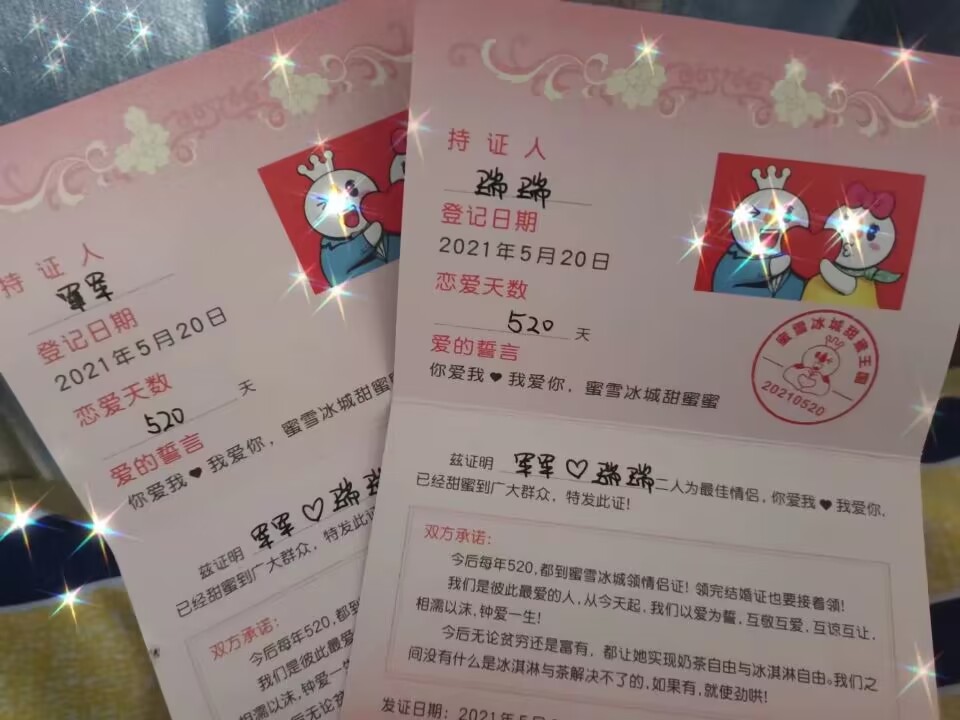 持证人
军军
登记日期
2021年5月20日
恋爱天数
520天
爱的誓言
你爱我❤我爱你，蜜雪冰城甜蜜
兹证明 军军♡瑞瑞
已经甜蜜到广大群众，特发此证
双方承诺：
今后每年520，都到
我们是彼此最爱
相濡以沫，钟爱一生
今后无论贫穷
间没有什么是冰
持证人
瑞瑞
登记日期
2021年5月20日
恋爱天数
520天
爱的誓言
你爱我❤我爱你，蜜雪冰城甜蜜蜜
蜜雪冰城甜蜜王国
20210520
兹证明 军军♡瑞瑞二人为最佳情侣，你爱我❤我爱你，
已经甜蜜到广大群众，特发此证！
双方承诺：
今后每年520，都到蜜雪冰城领情侣证！领完结婚证也要接着领！
我们是彼此最爱的人，从今天起，我们以爱为誓，互敬互爱，互谅互让，
相濡以沫，钟爱一生！
今后无论贫穷还是富有，都让她实现奶茶自由与冰淇淋自由。我们之
间没有什么是冰淇淋与茶解决不了的，如果有，就使劲哄！
发证日期：2021年5月